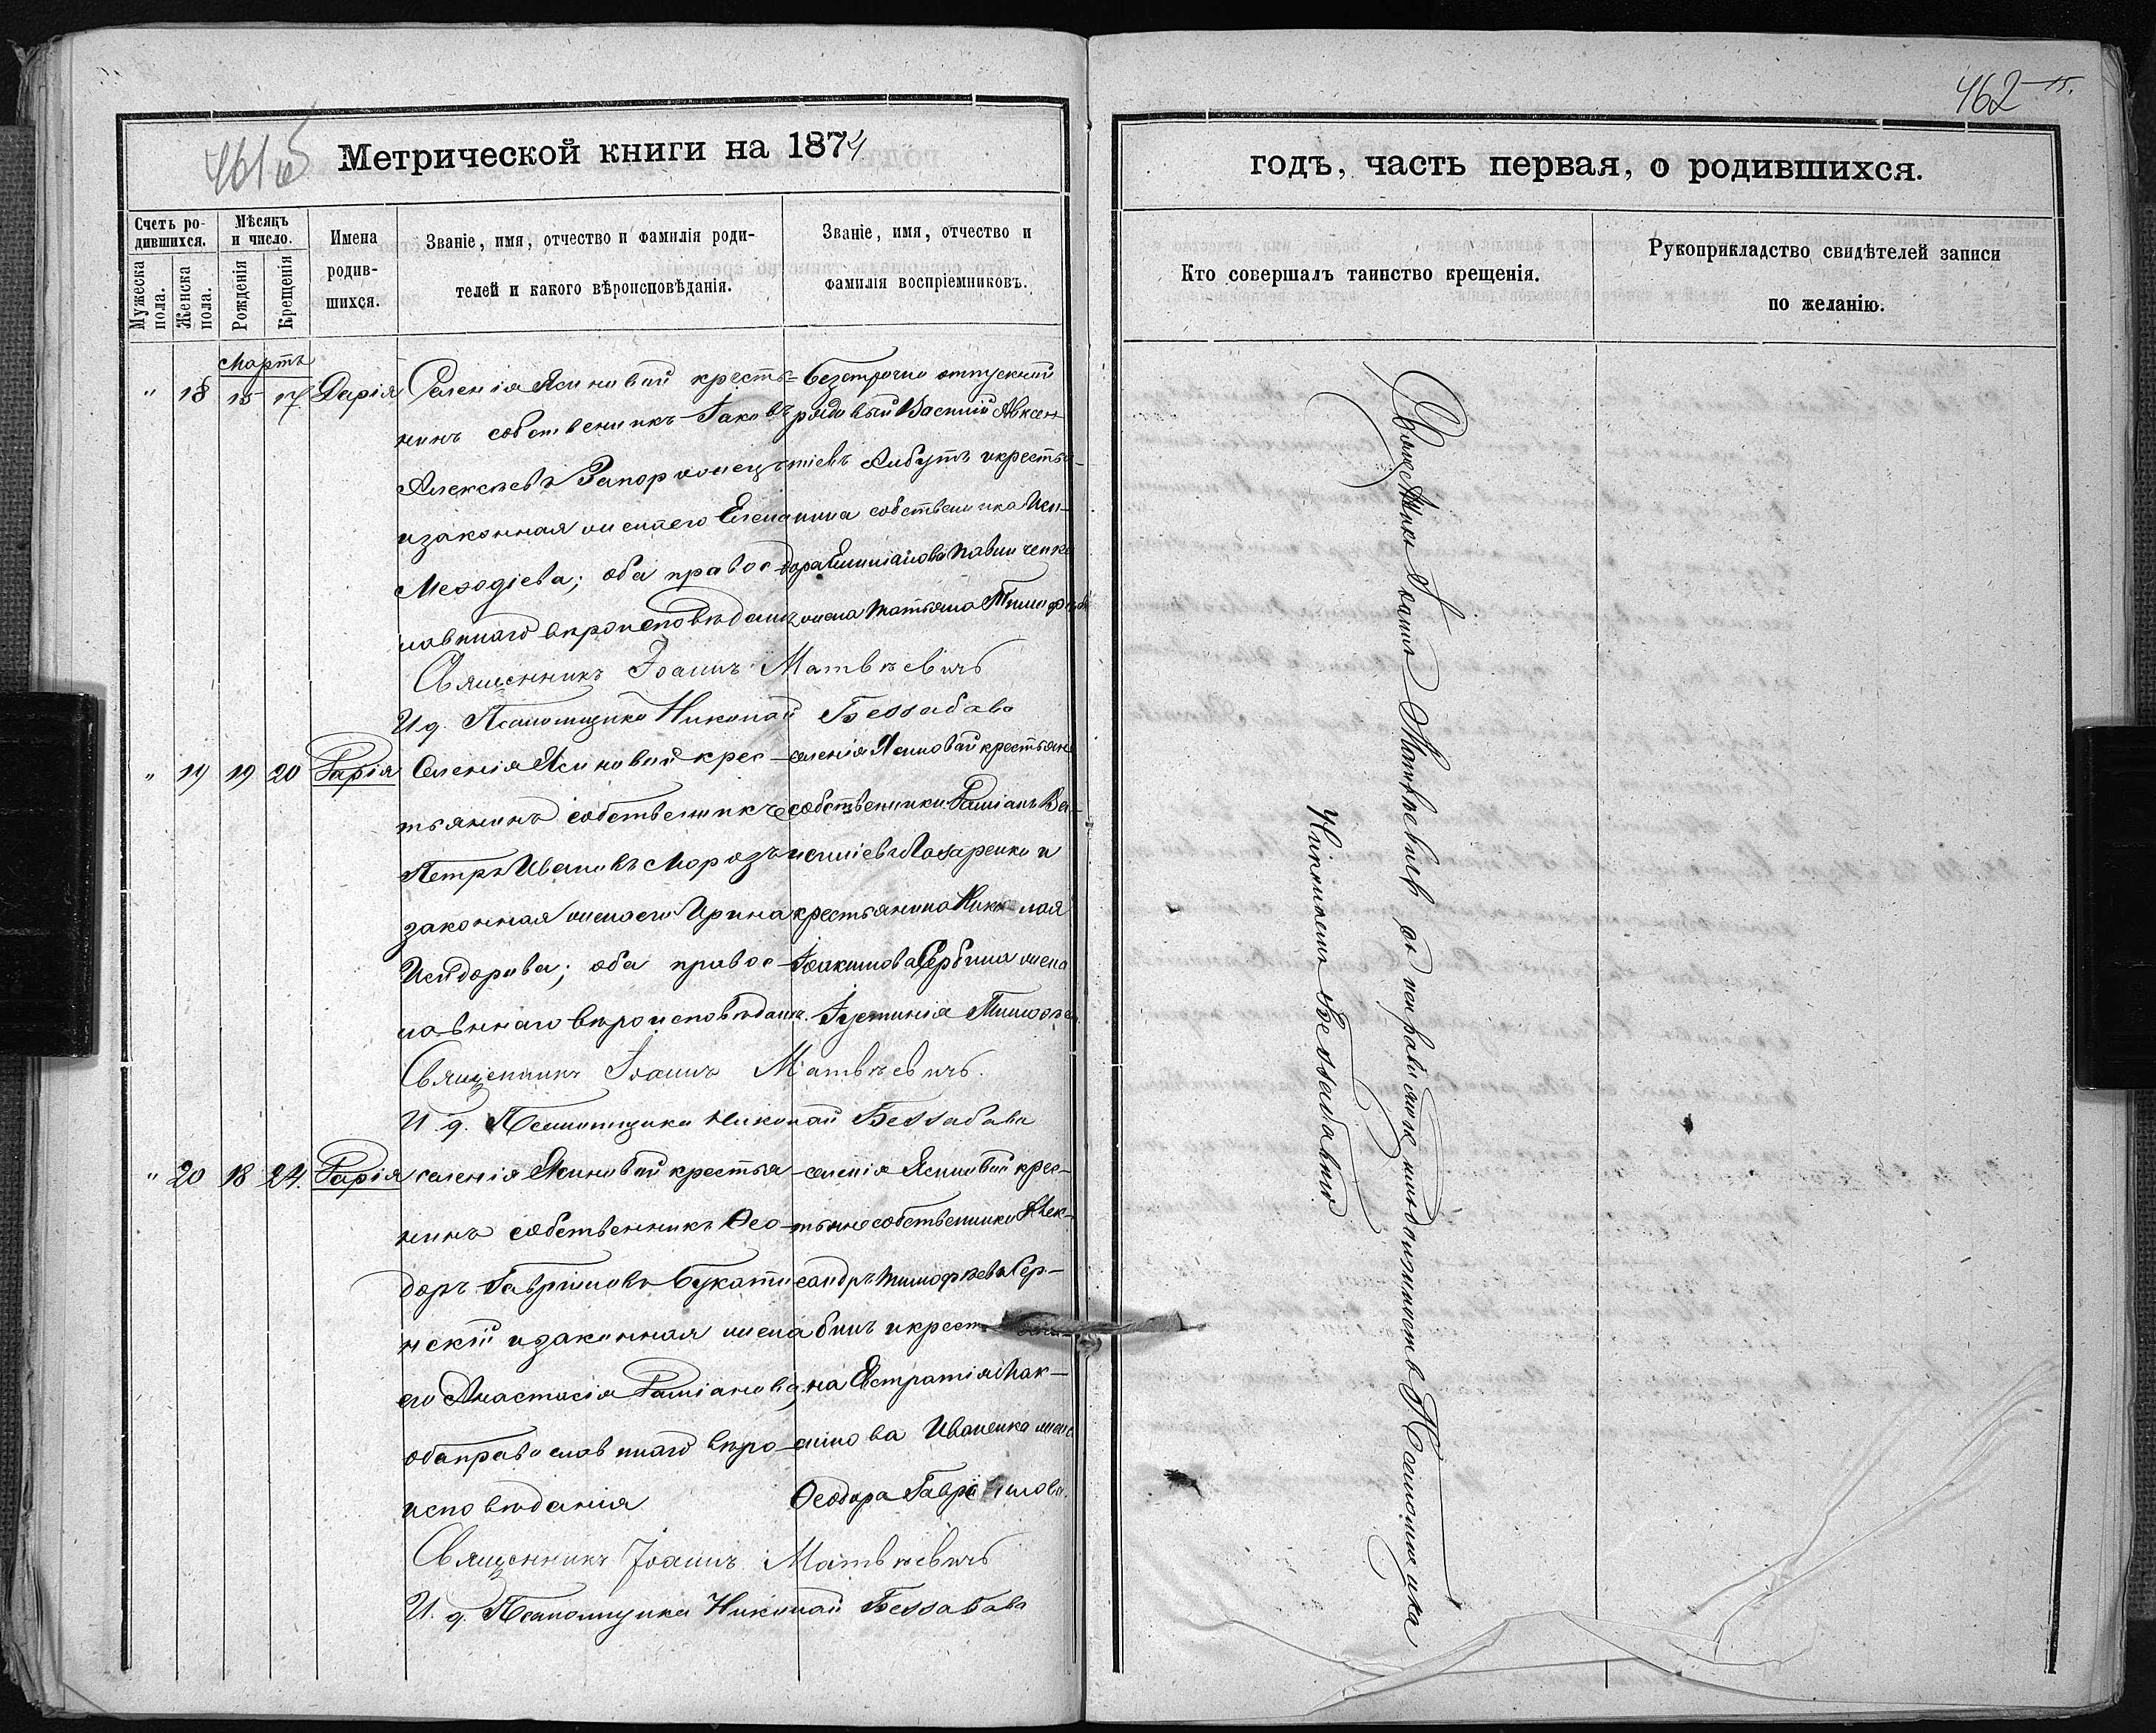 461 об
Метрической книги на 1874
Счетъ ро-
дившихся.
Мужеска пола.
Женска пола.
Мѣсяцъ
и число.
Рожденія
Крещенія
Имена
родив-
шихся.
Званіе, имя, отчество и фамилія роди-
телей и какого вѣроисповѣданія.
Званіе, имя, отчество и
фамилія воспріемниковъ.
Мартъ
" 18 15 17 Дарія
Селенія Ясиновой кресть-
нинъ собственникъ Іаковъ
Алексѣевъ Запорожецъ
и законная жена его Елена
Меѳодіева; оба правос-
лавнаго вѣроисповѣданія
безсрочно отпускной
рядовый Василій Авксен-
тіевъ Либутъ и крестья-
нина собственника Иси-
дора Емиліанова Павличенка
жена Татьяна Тимофѣева
Священникъ Іоаннъ Матвѣевичъ
И. д. Псаломщика Николай Беззабава
" 19 19 20 Дарія
Селенія Ясиновой крес-
тьянинъ собственникъ
Петръ Ивановъ Морозъ и
законная жена его Ирина
Исидорова; оба правос-
лавнаго вѣроисповѣданія.
селенія Ясиновой крестьяне
собственники Даміанъ Ва-
силіевъ Лазаренко и
крестьянина Николая
Іоакимова Сербина жена
Іустинія Тимоѳѣева
Священникъ Іоаннъ Матвѣевичъ.
И. д. Псаломщика Николай Беззабава
" 20 18 24. Дарія
селенія Ясиновой крестья-
нинъ собственникъ Ѳео-
доръ Гавріиловъ Букати
нскій и законная жена
его Анастасія Даміанова,
оба православнаго вѣро-
исповѣданія
селенія Ясиновой крес-
тьяне собственники Алек-
сандръ Тимофѣевъ Сер-
бинъ и крестьяни-
на Евстратія Мак-
симова Иваненка жена
Ѳеодора Гавріилова.
Священникъ Іоаннъ Матвѣевичъ
И. д. Псаломщика Николай Беззабава
462
15.
годъ, часть первая, о родившихся.
Кто совершалъ таинство крещенія.
Рукоприкладство свидѣтелей записи
по желанію.
Священникъ Іоаннъ Матвѣевичъ съ исправляющимъ должность Псаломщика
Николаемъ Беззабавою